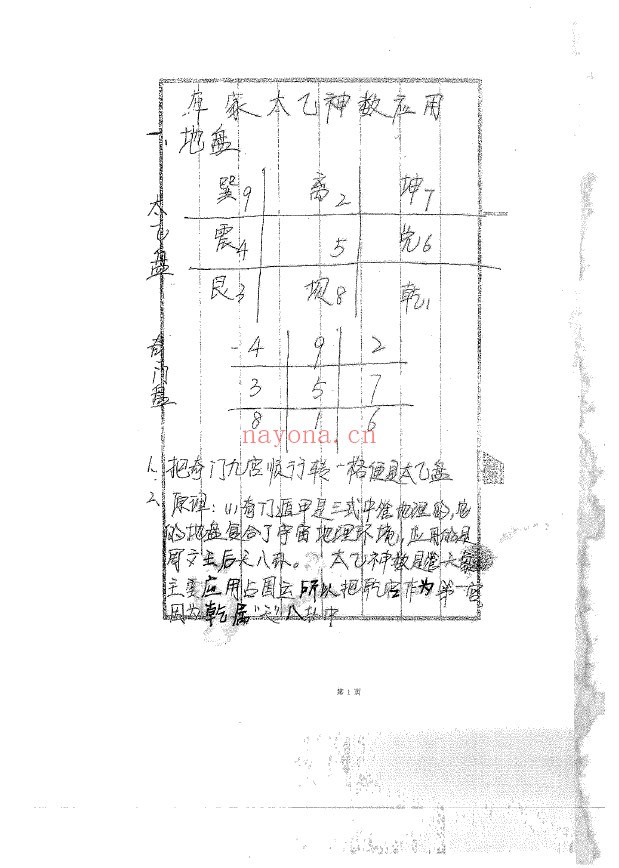 库家太乙神数应用
一、地盘
太乙盘
巽9 离2 坤7
震4 5 兑6
艮3 坎8 乾1
奇门盘
4 9 2
3 5 7
8 1 6
nayona.cn
1、把奇门九宫顺行转一格便是太乙盘
2、原理：(1)奇门遁甲是三式中唯地理的，他
的地盘复合了宇宙地理环境，应用的是
周文王后天八卦。 太乙神数是
主要应用占国运所以把乾宫作为第一宫
因为乾属“天”八卦中
第 1 页